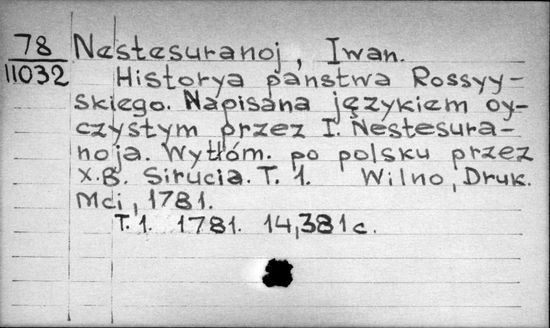 78 Nestesuranoj, Iwan.
11032 Historya państwa Rossyy-
skiego. Napisana językiem oy-
czystym przez I. Nestesura-
noja. Wytłóm. po polsku przez
X.B. Sirucia. T. 1. Wilno, Druk.
Mci, 1781.
T. 1. 1781. 14,381 c.